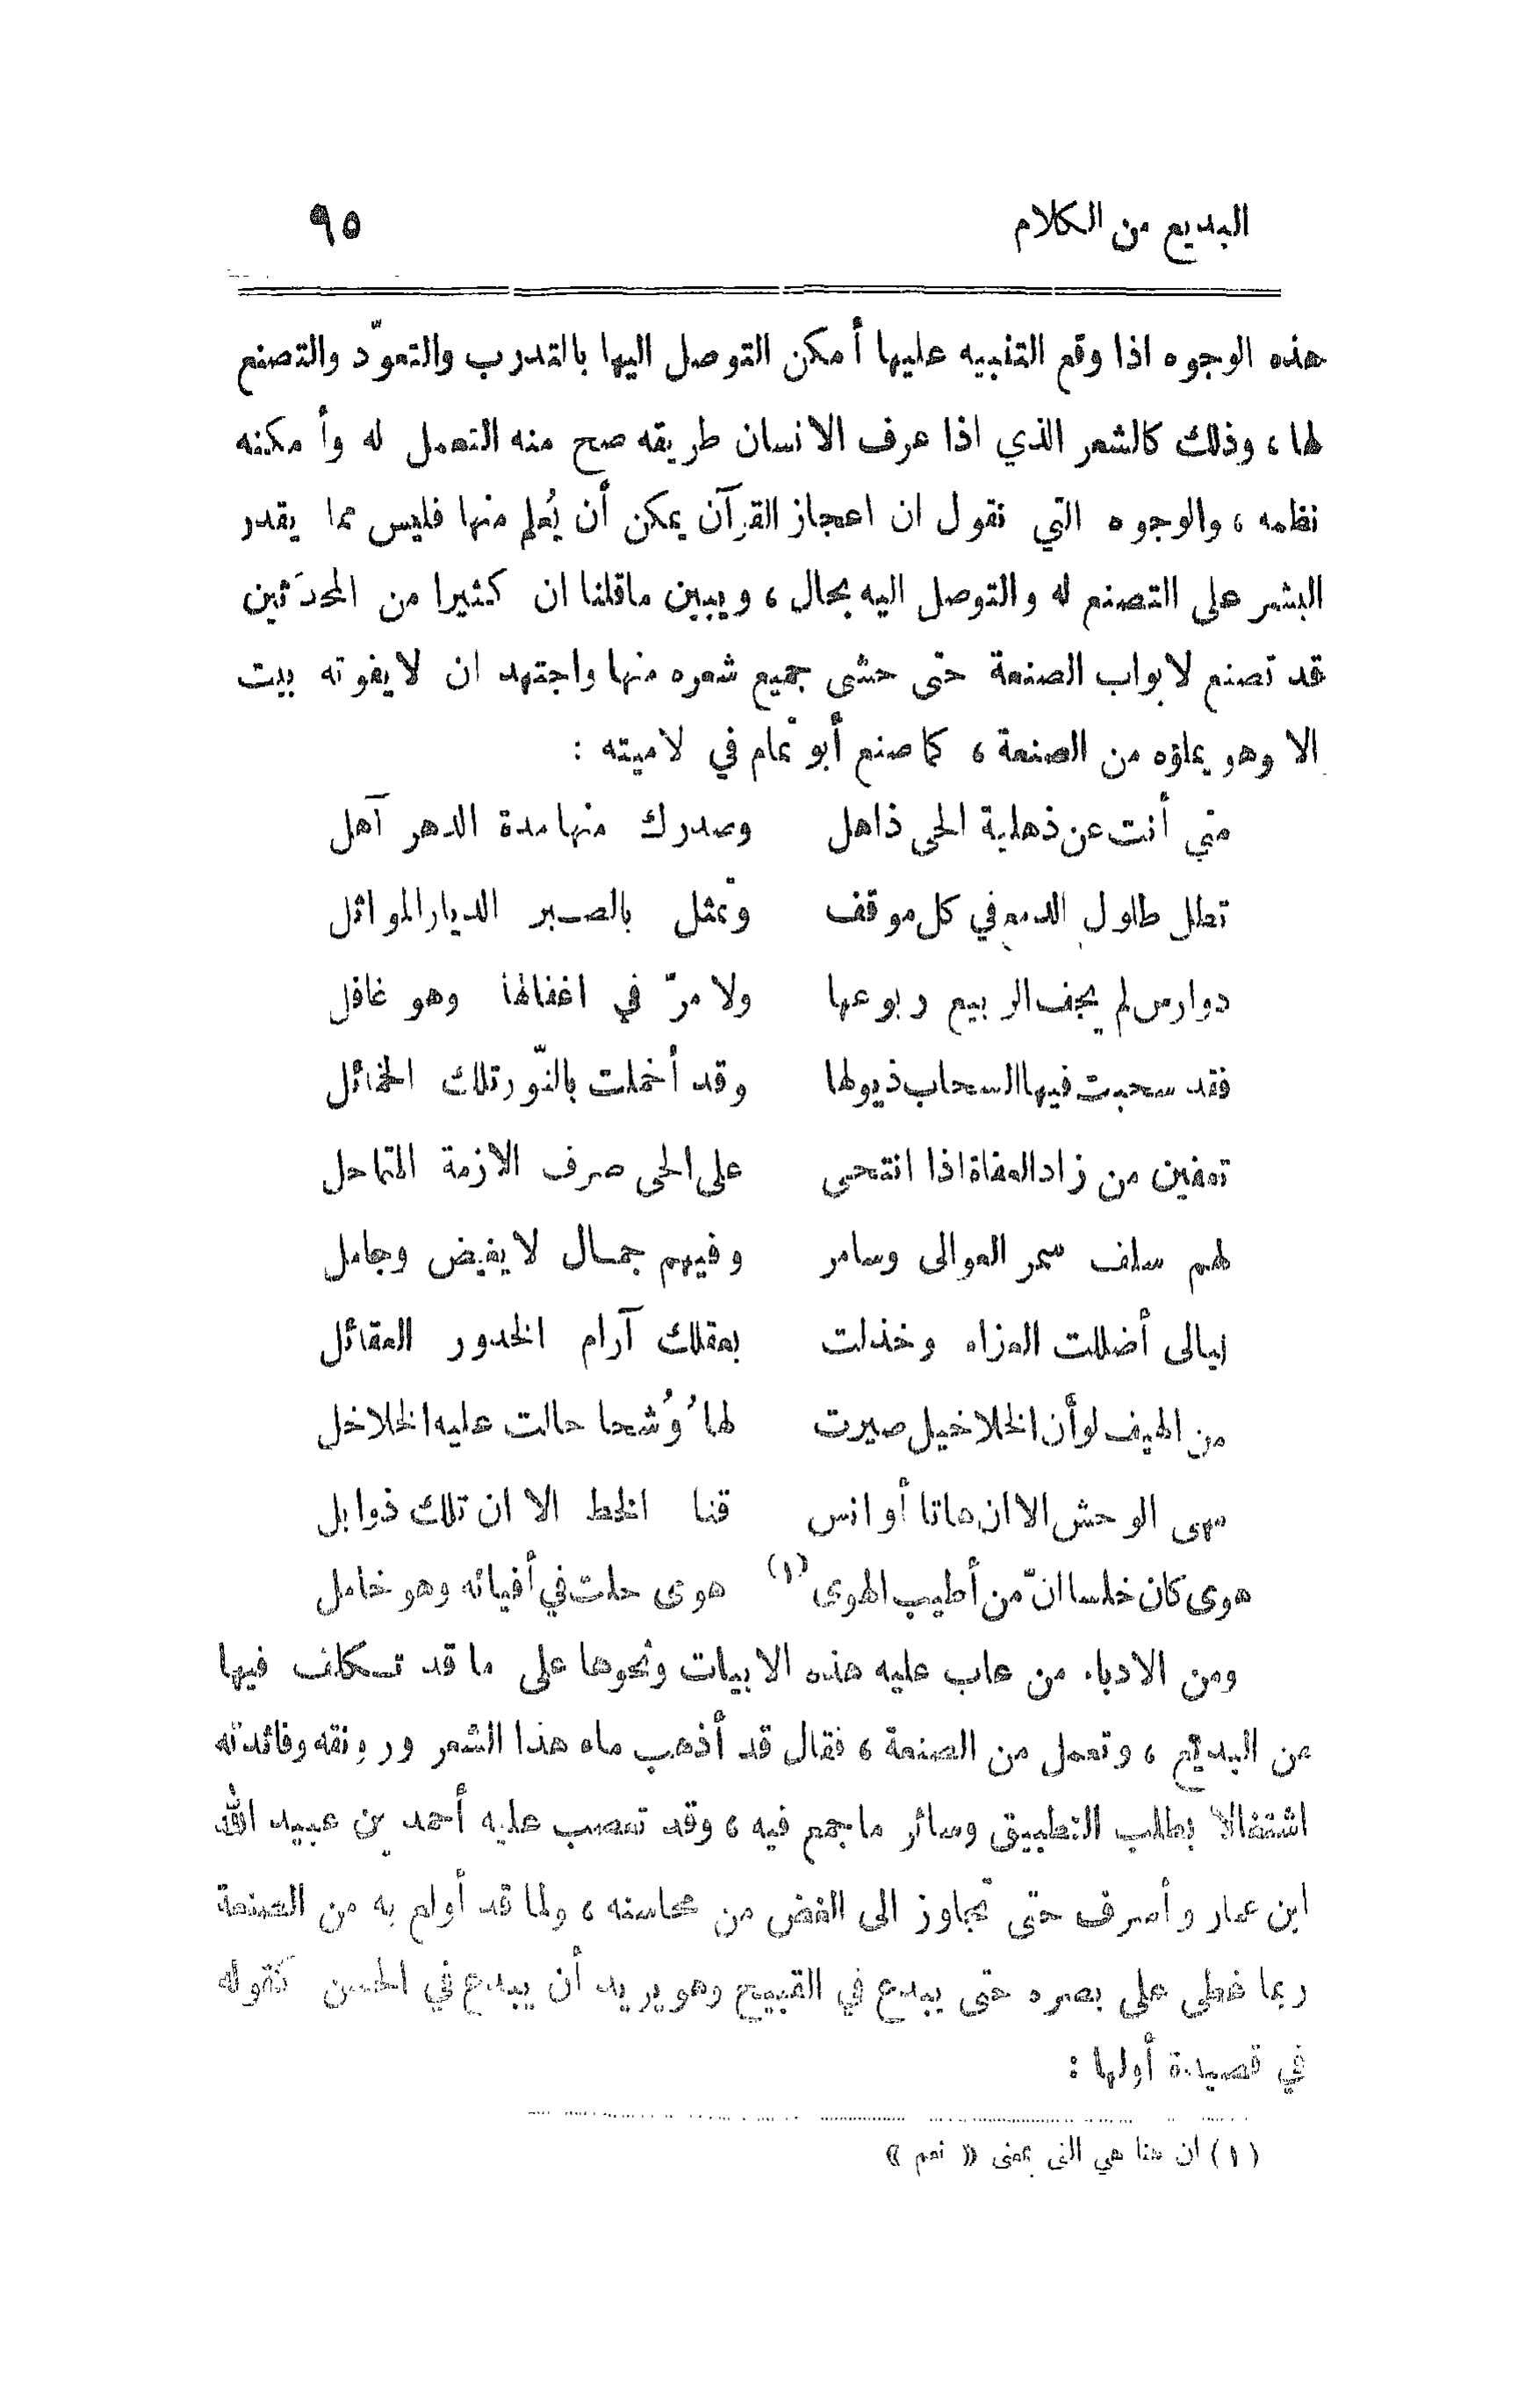 البديع من الكلام ٩٥
هذه الوجوه اذا وقع التنبيه عليها أمكن التوصل اليها بالتدرب والتعوّد والتصنع
لها، وذلك كالشعر الذي اذا عرف الانسان طريقه صح منه التعمل له وأمكنه
نظمه، والوجوه التي نقول ان اعجاز القرآن يمكن أن يُعلم منها فليس مما يقدر
البشر على التصنع له والتوصل اليه بحال، ويبين ماقلنا ان كثيرا من المحدَثين
قد تصنع لابواب الصنعة حتى حشى جميع شعره منها واجتهد ان لايفوته بيت
الا وهو يملؤه من الصنعة، كما صنع أبو تمام في لاميته :
متى أنت عن ذهلية الحى ذاهل وصدرك منها مدة الدهر آهل
تطل طلول الدمع في كل موقف وتمثل بالصبر الديار المواثل
دوارس لم يجف الربيع ربوعها ولا مرّ في اغفالها وهو غافل
فقد سحبت فيها السحاب ذيولها وقد أخملت بالنّور تلك الخمائل
تعفين من زاد العفاة اذا انتحى على الحى صرف الازمة المتماحل
لهم سلف سمر العوالى وسامر وفيهم جمال لايغيض وجامل
ليالى أضللت العزاء وخذلت بعقلك آرام الخدور العقائل
من الهيف لو أن الخلاخيل صيرت لها وُشحا حالت عليه الخلاخل
مهى الوحش الا ان هاتا أوانس قنا الخط الا ان تلك ذوابل
هوى كان خلسا انّ من أطيب الهوى (١) هوى حلت في أفيائه وهو خامل
ومن الادباء من عاب عليه هذه الابيات ونحوها على ما قد تكلف فيها
من البديع، وتعمل من الصنعة، فقال قد أذهب ماء هذا الشعر ورونقه وفائدته
اشتغالا بطلب التطبيق وسائر ماجمع فيه، وقد تعصب عليه أحمد بن عبيد الله
ابن عمار وأسرف حتى تجاوز الى الغض من محاسنه، ولما قد أولع به من الصنعة
ربما غطى على بصره حتى يبدع في القبيح وهو يريد أن يبدع في الحسن كقوله
في قصيدة أولها :
(١) ان هنا هي التى بمعنى « نعم »